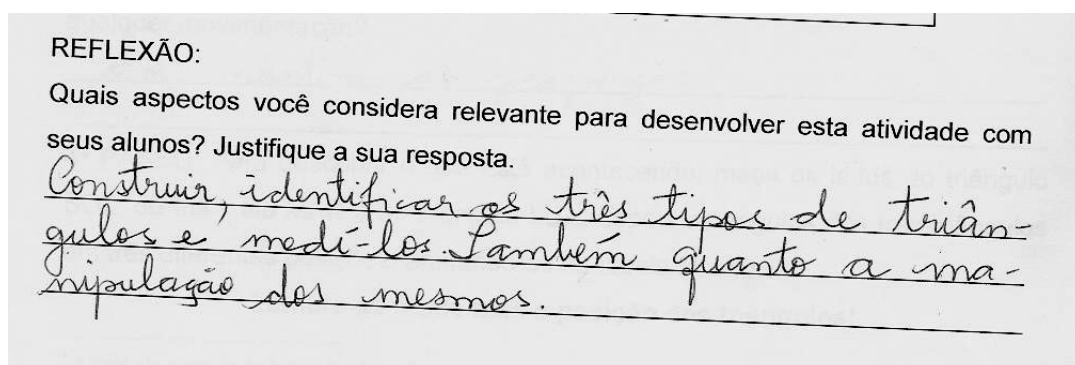 REFLEXÃO:
Quais aspectos você considera relevante para desenvolver esta atividade com
seus alunos? Justifique a sua resposta.
Construir, identificar os três tipos de triân
gulos e medí-los. Também quanto a ma-
nipulação dos mesmos.